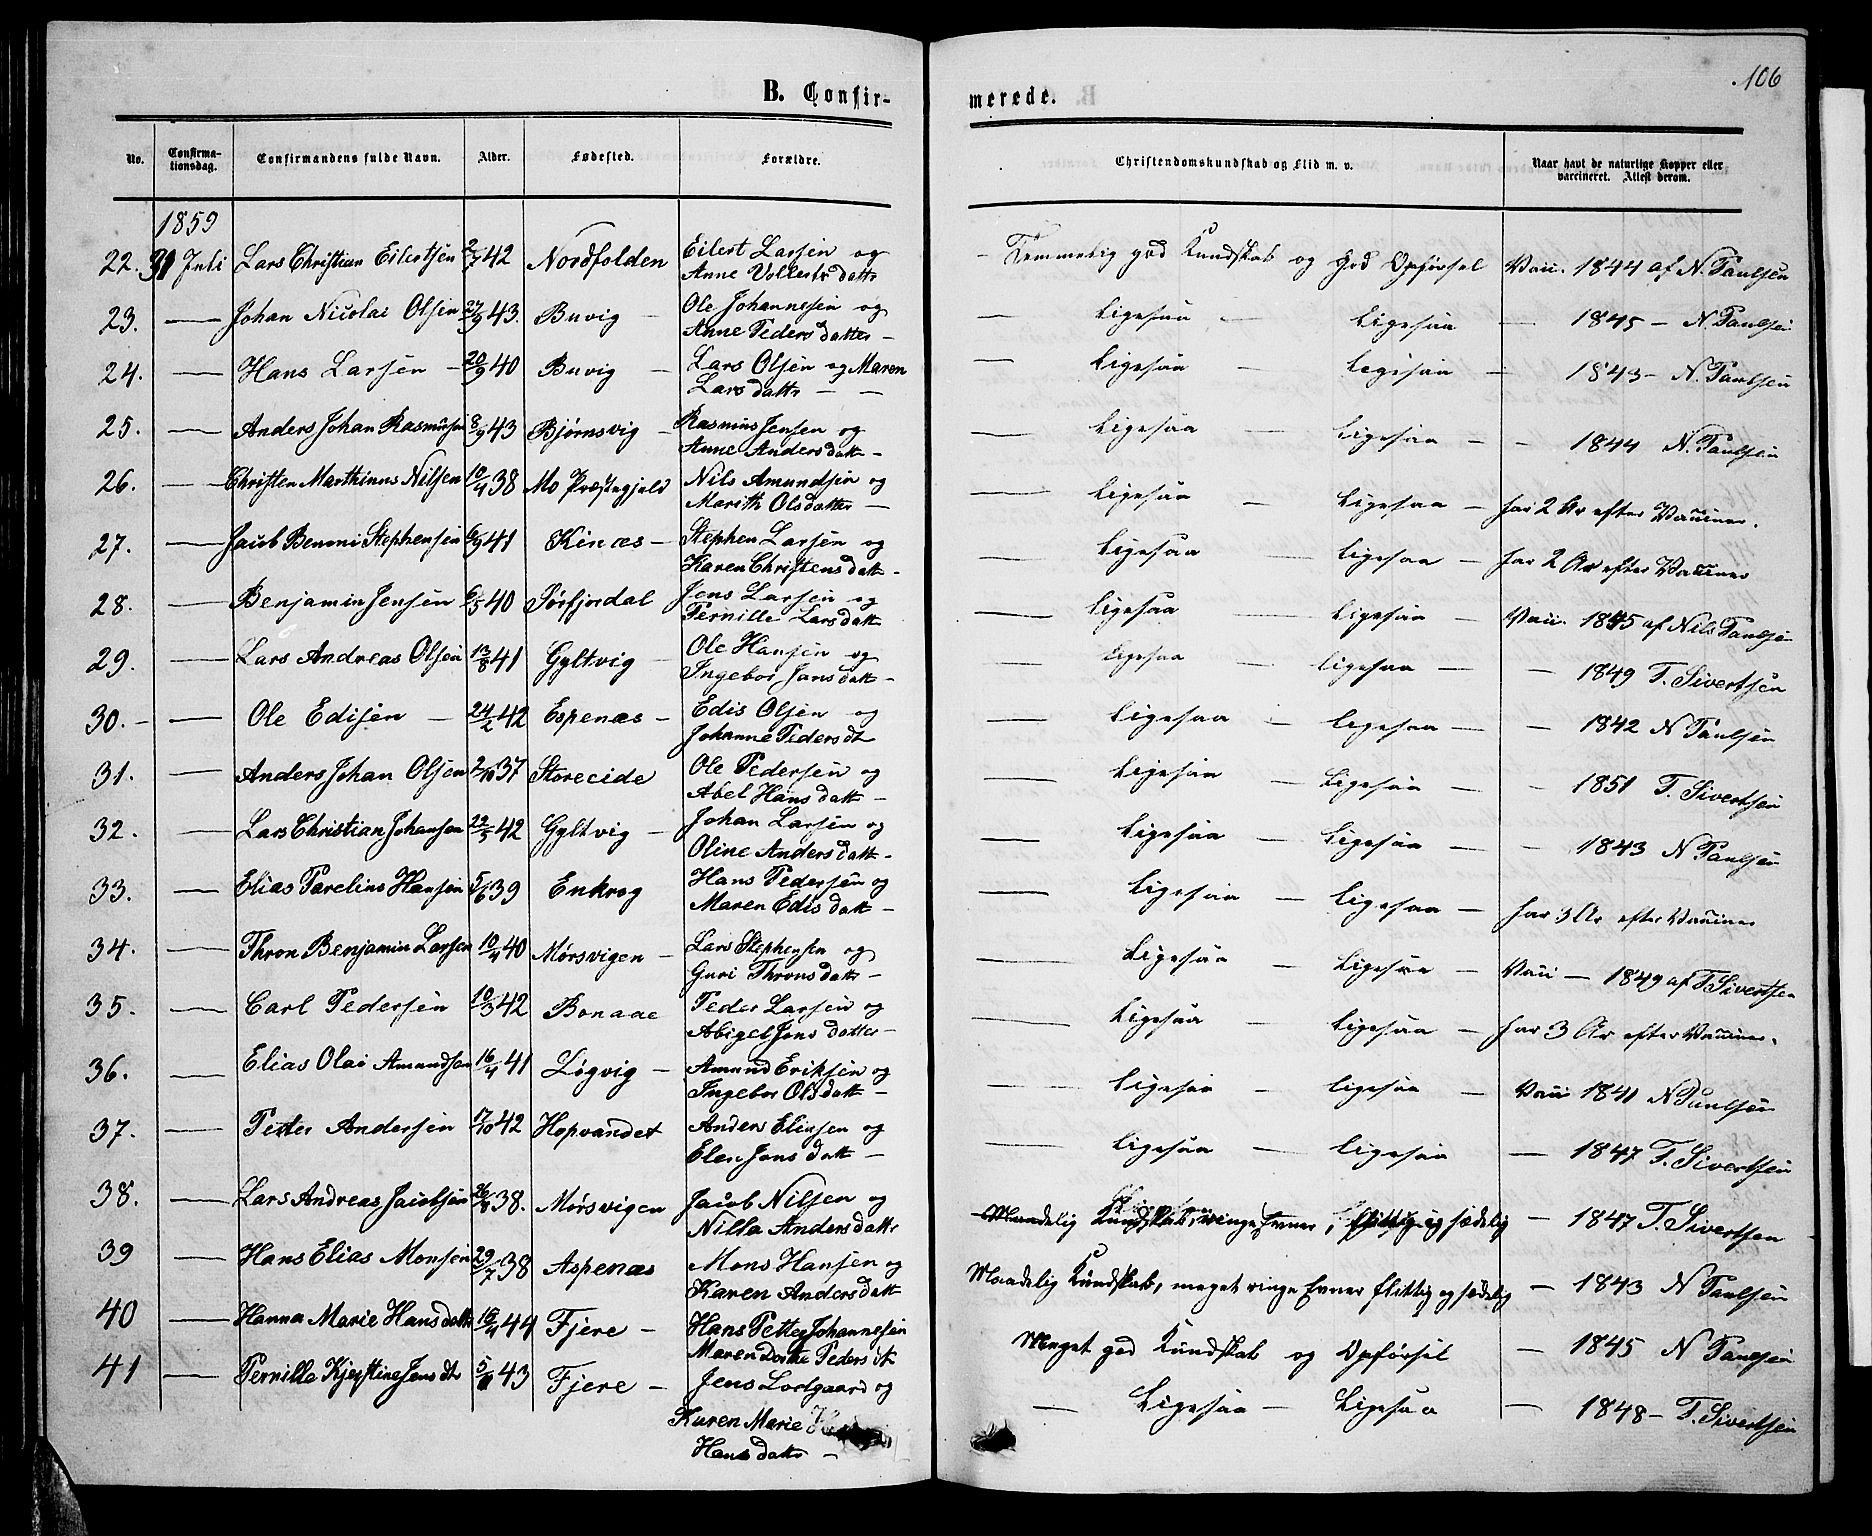 106
B. Confir-
merede.
No.
Confirma-
tionsdag.
Confirmandens fulde Navn.
Alder.
Fødested.
Forældre.
Christendomskundskab og Flid m. v.
Naar havt de naturlige Kopper eller
vaccineret. Attest derom.
1859
22. 31 Juli Lars Christian Eilertsen 2/7 42 Nordfolden Eilert Larsen og - Temmelig god Kundskab og god Opførsel Vacc. 1844 af N. Paulsen
Anne Vollertsdatter
23. — Johan Nicolai Olsen 27/9 43. Buvig — Ole Johannesen og — Ligesaa — Ligesaa — 1845 — N Paulsen
Anne Pedersdatter —
24. — Hans Larsen — 20/9 40 Buvig — Lars Olsen og Maren — Ligesaa — Ligesaa — 1843 — N. Paulsen
Larsdattr — —
25. — Anders Johan Rasmussen 8/9 43 Bjørnsvig — Rasmus Jensen og — Ligesaa — Ligesaa — - 1844 N. Paulsen
Anne Andersdatt —
26. — Christen Marthinus Nilsen 10/4 38 Mo Præstegjeld Nils Amundsen og — Ligesaa — Ligesaa — har 2 Ar efter Vacciner.
Marith Olsdatter —
27. — Jacob Benoni Stephensen 6/9 41 Kinæs — Stephen Larsen og — Ligesaa — Ligesaa — har 2 Ar efter Vacciner
Karen Christensdatt —
28. — Benjamin Jensen 6/5 40 Sørfjordal Jens Larsen og — Ligesaa — Ligesaa — Vacc. 1845 af Nils Paulsen
Pernille Larsdatt
29. — Lars Andreas Olsen 13/8 41 Gyltvig — Ole Hansen og — Ligesaa — Ligesaa — — 1849 T. Sivertsen
Ingebor Jansdatt —
30. — — Ole Edisen — 24/2 42 Espenæs — Edis Olsen — og — Ligesaa — Ligesaa — — 1842 N Paulsen
Johanne Pedersdt
31. — Anders Johan Olsen 2/10 37 Storeeide Ole Pedersen og — Ligesaa — Ligesaa — - 1851 T. Sivertsen
Abel Hansdatt —
32. — Lars Christian Johansen 22/5 42 Gyltvig — Johan Larsen og — Ligesaa — Ligesaa — - 1843 N Paulsen
Oline Andersdatt —
33. — Elias Parelius Hansen 5/6 39 Enkrog Hans Pedersen og — Ligesaa — Ligesaa — har 3 Ar efter Vacciner
Maren Edisdatt —
34. — Thron Benjamin Larsen 10/4 40 Mørsvigen — Lars Stephensen og — Ligesaa — Ligesaa — Vacc — 1849 af T Sivertsen
Guri Thronsdatt —
35. — Carl Pedersen 10/3 42 Bonaae Peder Larsen og — Ligesaa — Ligesaa — har 3 Ar efter Vacciner.
Abigel Jonsdatter —
36. — Elias Olai Amundsen 16/4 41 Løgvig — Amund Eriksen og — Ligesaa — Ligesaa — Vacc 1841 N Paulsen
Ingebor Olsdatt —
37. — Petter Andersen 17/10 42 Hopvandet Anders Eliasen og — Ligesaa — Ligesaa — 1847 T. Sivertsen
Elen Jonsdatt —
38. — Lars Andreas Jacobsen 26/8 38. Mørsvigen Jacob Nilsen og Maadelig Kundskab, ringe Evner, flittig og sædelig — 1847 T. Sivertsen
Nilla Andersdattr
39 — Hans Elias Monsen 29/7 38 Aspenæs Mons Hansen og Maadelig Kundskab, meget ringe Evner flittig og sædelig — 1843 N Paulsen
Karen Andersdatt
40 — Hanna Marie Hansdatter 16/4 44 Fjere — Hans Petter Johannesen Meget god Kundskab og Opførsel — 1845 N Paulsen
Maren Dorthe Pedersdt
41 — Pernilla Kjerstine Jensdt 5/11 43 Fjere — Jens Lodgaard og — Ligesaa — Ligesaa — 1848 — T. Sivertsen
Karen Marie
Hansdattr —